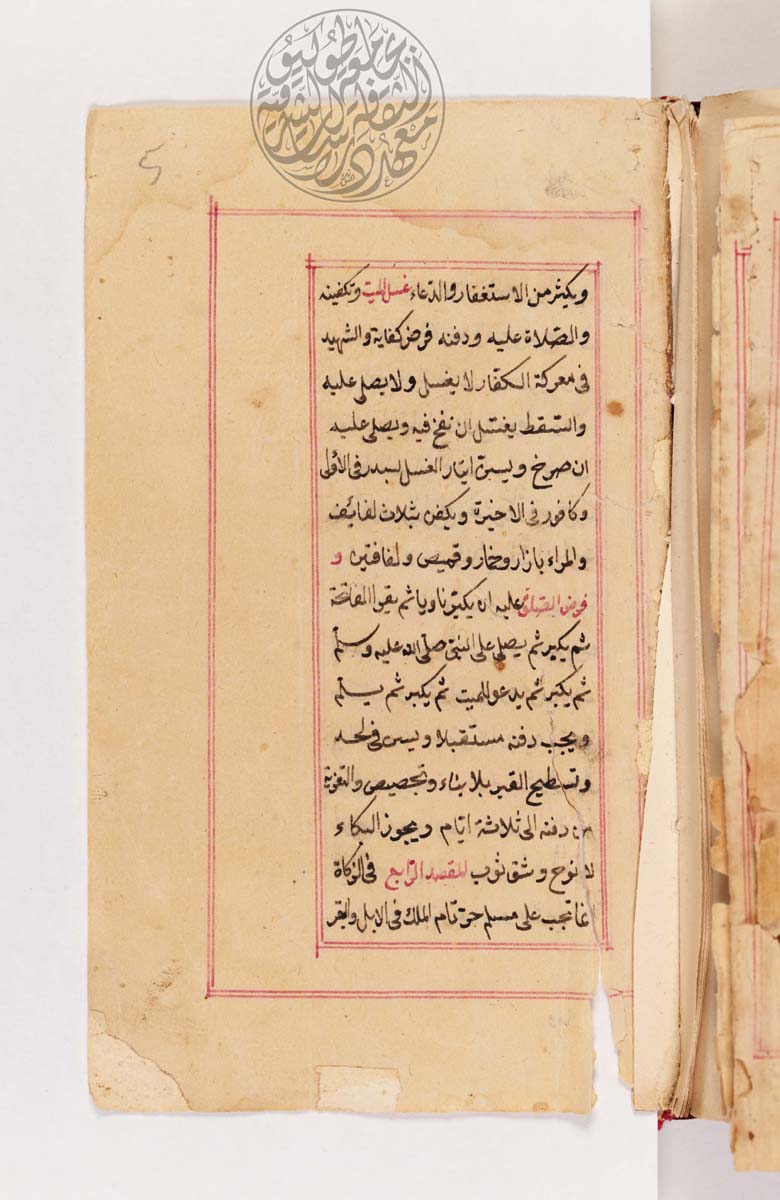 5
ويكثر من الاستغفار والدعاء غسل الميت وتكفينه
والصلاة عليه ودفنه فرض كفاية والشهيد
فى معركة الكفار لا يغسل ولا يصلى عليه
والسقط يغسل ان نفخ فيه ويصلى عليه
ان صرخ ويسن ايتار الغسل بسدر فى الأولى
وكافور فى الاخيرة ويكفن بثلاث لفائف
والمراء بازار وخمار وقميص ولفافتين و
فرض الصلاة عليه ان يكبر ناويا ثم يقرا الفاتحة
ثم يكبر ثم يصلى على النبى صلى الله عليه وسلم
ثم يكبر ثم يدعو للميت ثم يكبر ثم يسلم
ويجب دفنه مستقبلا ويسن فى لحد
وتسطيح القبر بلا بناء وتجصيص والتعزية
من دفنه الى ثلاثة ايام ويجوز البكاء
لا نوح وشق ثوب المقصد الرابع فى الزكاة
انما تجب على مسلم حر تام الملك فى الابل والبقر